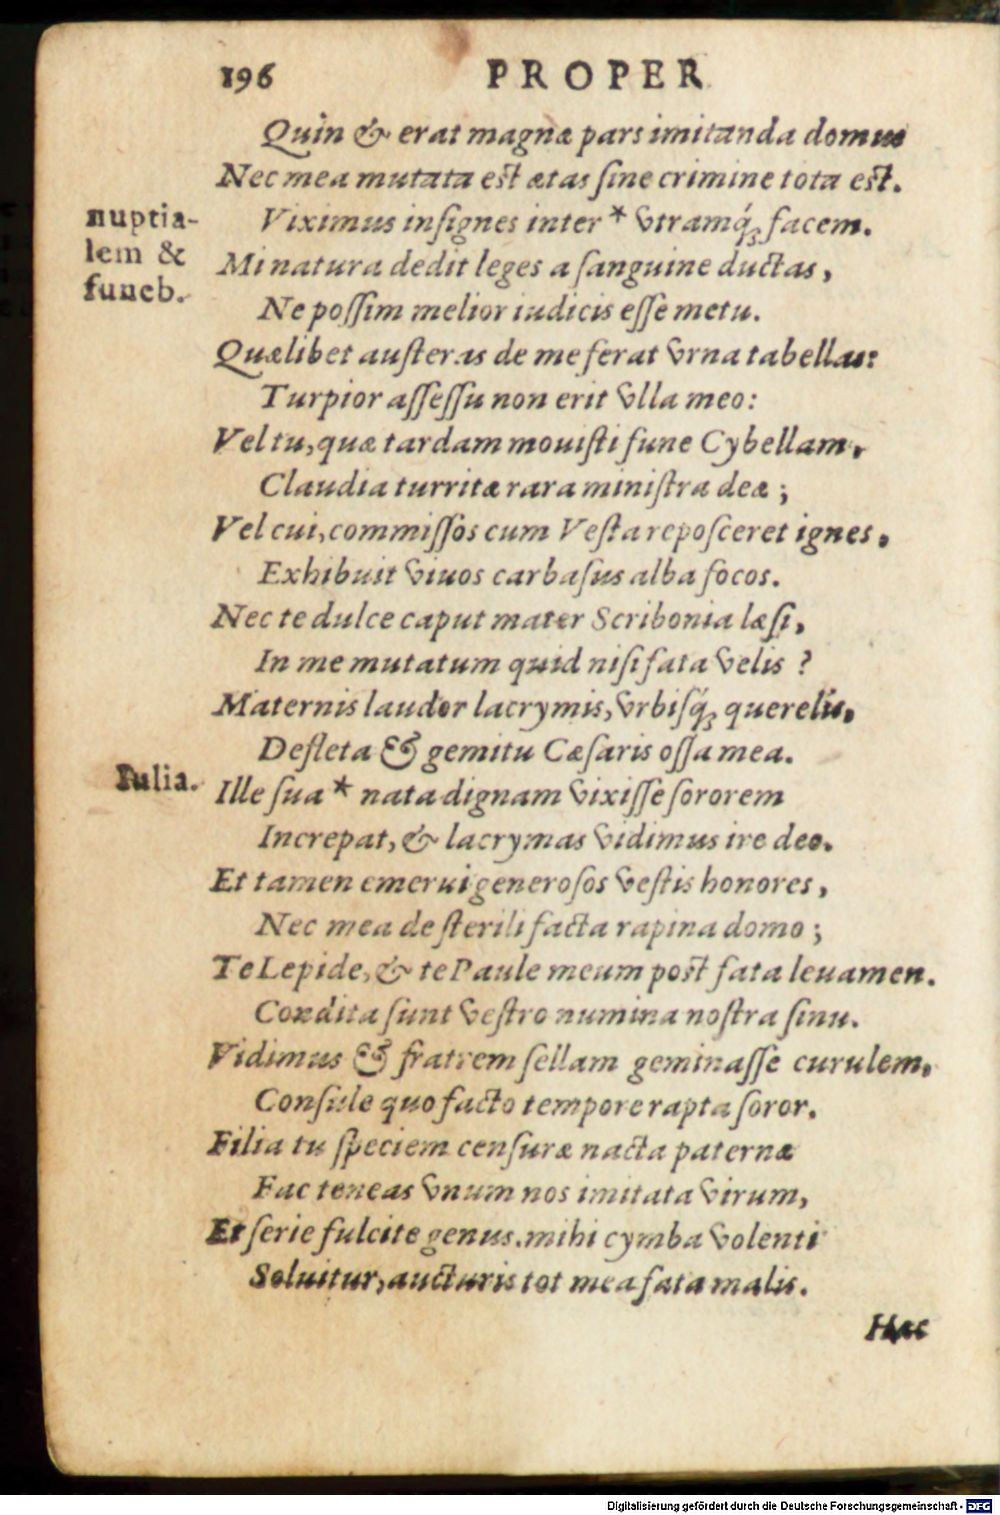 196 PROPER
Quin & erat magnæ pars imitanda domus
Nec mea mutata est ætas sine crimine tota est.
nuptia-
lem &
funeb.
Viximus insignes inter * vtramq́; facem.
Mi natura dedit leges a sanguine ductas,
Ne possim melior iudicis esse metu.
Quælibet austeras de me ferat vrna tabellas:
Turpior assessu non erit vlla meo:
Vel tu, quæ tardam mouisti fune Cybellam,
Claudia turritæ rara ministra deæ;
Vel cui, commissos cum Vesta reposceret ignes,
Exhibuit viuos carbasus alba focos.
Nec te dulce caput mater Scribonia læsi,
In me mutatum quid nisi fata velis ?
Maternis laudor lacrymis, vrbisq́; querelis,
Defleta & gemitu Cæsaris ossa mea.
Iulia.
Ille sua * nata dignam vixisse sororem
Increpat, & lacrymas vidimus ire deo.
Et tamen emerui generosos vestis honores,
Nec mea de sterili facta rapina domo;
Te Lepide, & te Paule meum post fata leuamen.
Condita sunt vestro numina nostra sinu.
Vidimus & fratrem sellam geminasse curulem,
Consule quo facto tempore rapta soror.
Filia tu speciem censuræ nacta paternæ
Fac teneas vnum nos imitata virum,
Et serie fulcite genus. mihi cymba volenti
Soluitur, aucturis tot mea fata malis.
Hæc
Digitalisierung gefördert durch die Deutsche Forschungsgemeinschaft - DFG